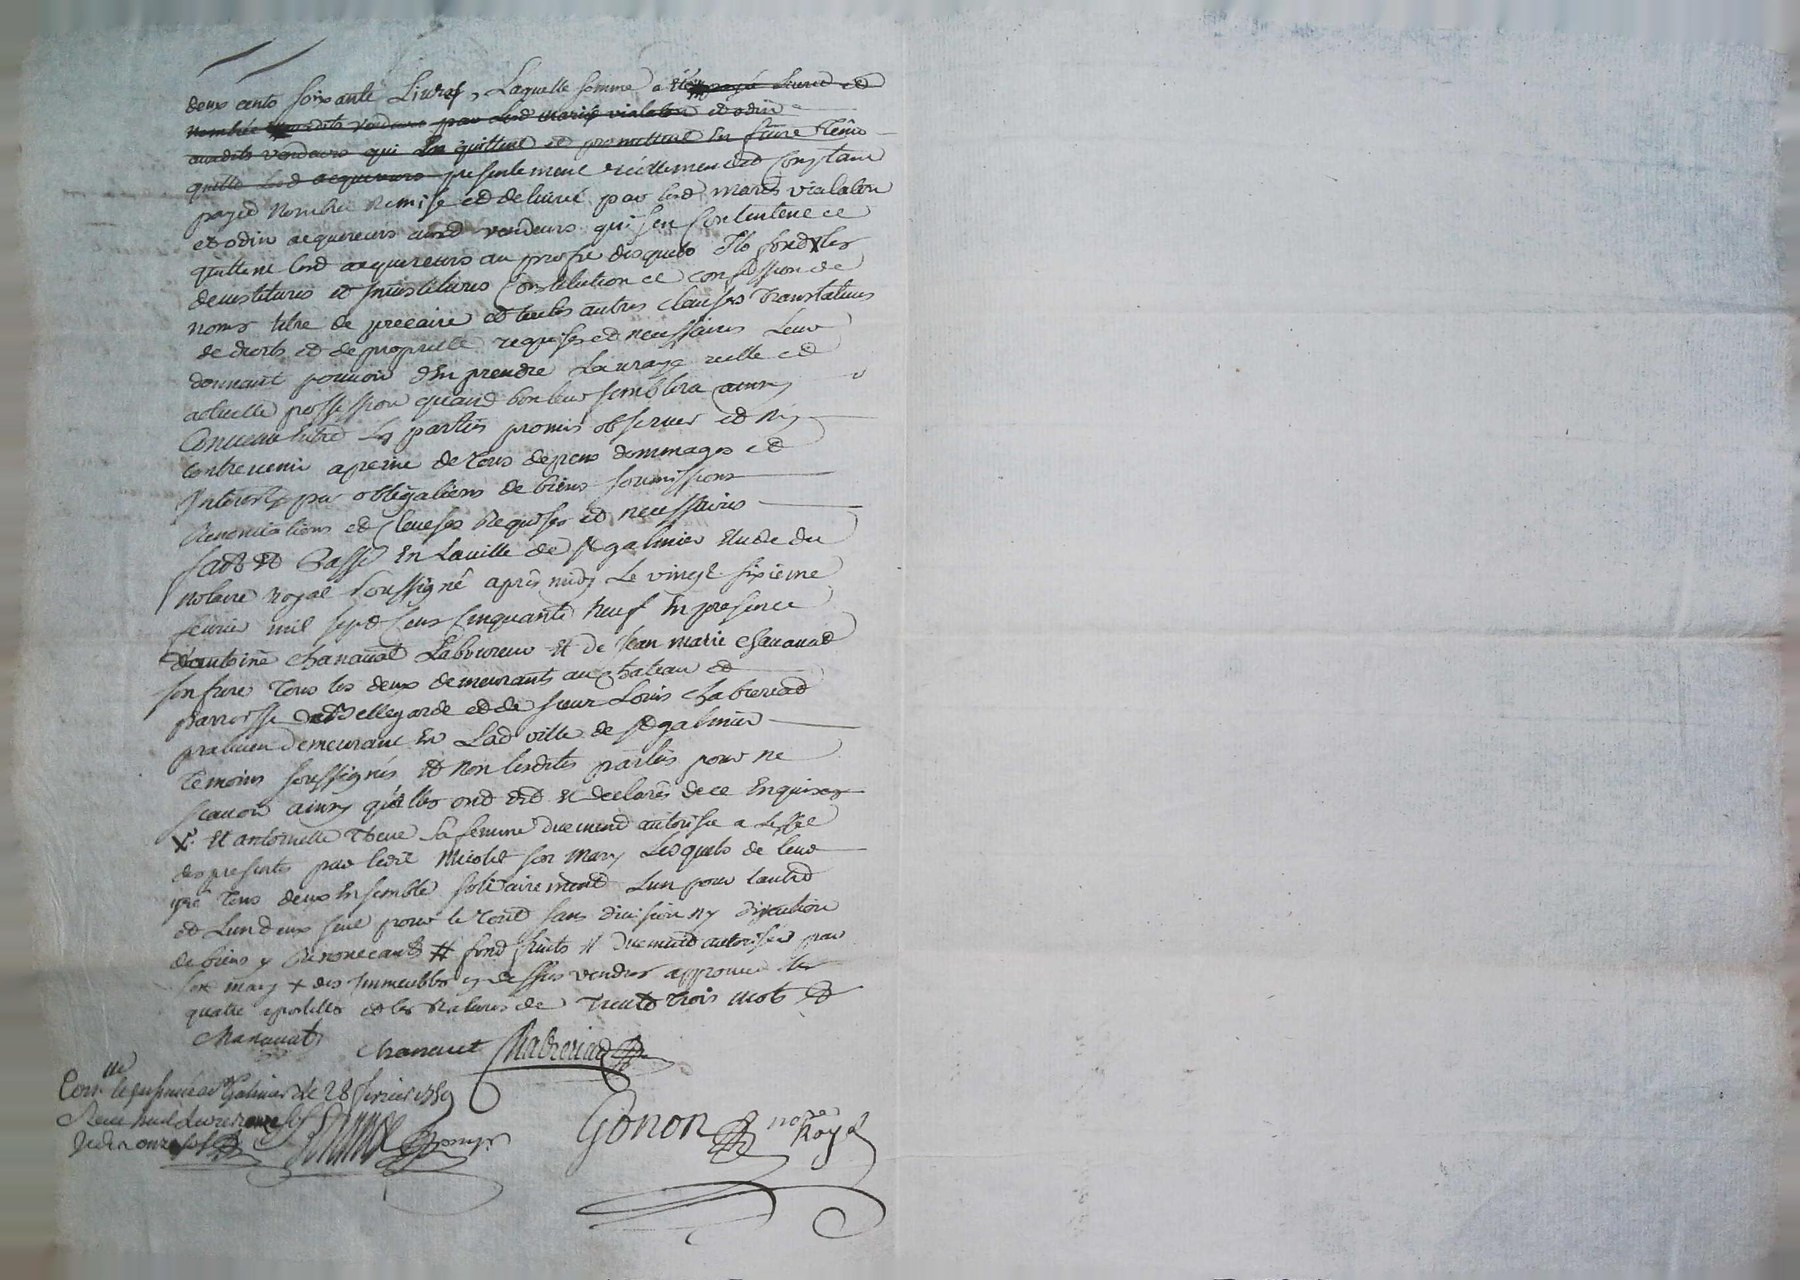 deux cents soixante Livres, Laquelle somme a été payée Leured et
nombrée ausdits vendeurs par lesd mariés vialalon et odin
ausdits vendeurs qui Len quittent et promettent En faire Tenir
quitte Lesd acquereurs presentement réellement et Comptant
payéd Nombrée Remise et delivrée par lesd mariés vialalon
et odin acquereurs ausd vendeurs qui s'en Contentent ce
quittent lesd acquereurs au profit desquels Ils fond X les
devestitures et Investitures Constitution ce confession de
noms titre de precaire et toutes autres clauses Translatives
de droits et de proprieté requises et necessaires Leur
donnant pouvoir d'En prendre La vraye reelle et
actuelle possession quand bon leur semblera ainsy
Convenu Entre Les parties promis observer et Ny
Contrevenir a peine de Tous depens dommages et
Interests par obligations de biens soumissions
Renonciations et Clauses Requises et necessaires
fait et Passé En La ville de st galmier Etude du
Notaire Royal soussigné après midy Le vingt sixieme
fevrier mil sept Cens Cinquante Neuf En presence
d'antoine chanavat Laboureur et de Jean marie chavanat
son frere Tous les deux demeurants au chateau et
parroisse de Bellegarde et de sieur Louis chabreriad
praticien demeurant En Lad ville de st galmier
Temoins soussignés et Non lesdites parties pour ne
scavoir ainsy qu'elles ont dit et declarés de ce Enquises
X. Et antoinette Theve sa femme duement autorisée a L'effet
des presentes par ledit Nicolet son mary Lesquels de leur
gré Tous deux Ensemble solidairement L'un pour l'autre
et L'un d'eux seul pour le Tout sans division ny discution
de biens y Renonceants # fond fruits et duement autorisée par
son mary + des Immeubles cy dessus vendus approuvé les
quatre apostilles et les Ratures de Trente Trois mots et
Chanavat
chanavat Chabreriad
Con.lle le present acte a st Galmier le 28 fevrier 1759
Receu huit Livres onze sols
Gonon no.re Royal